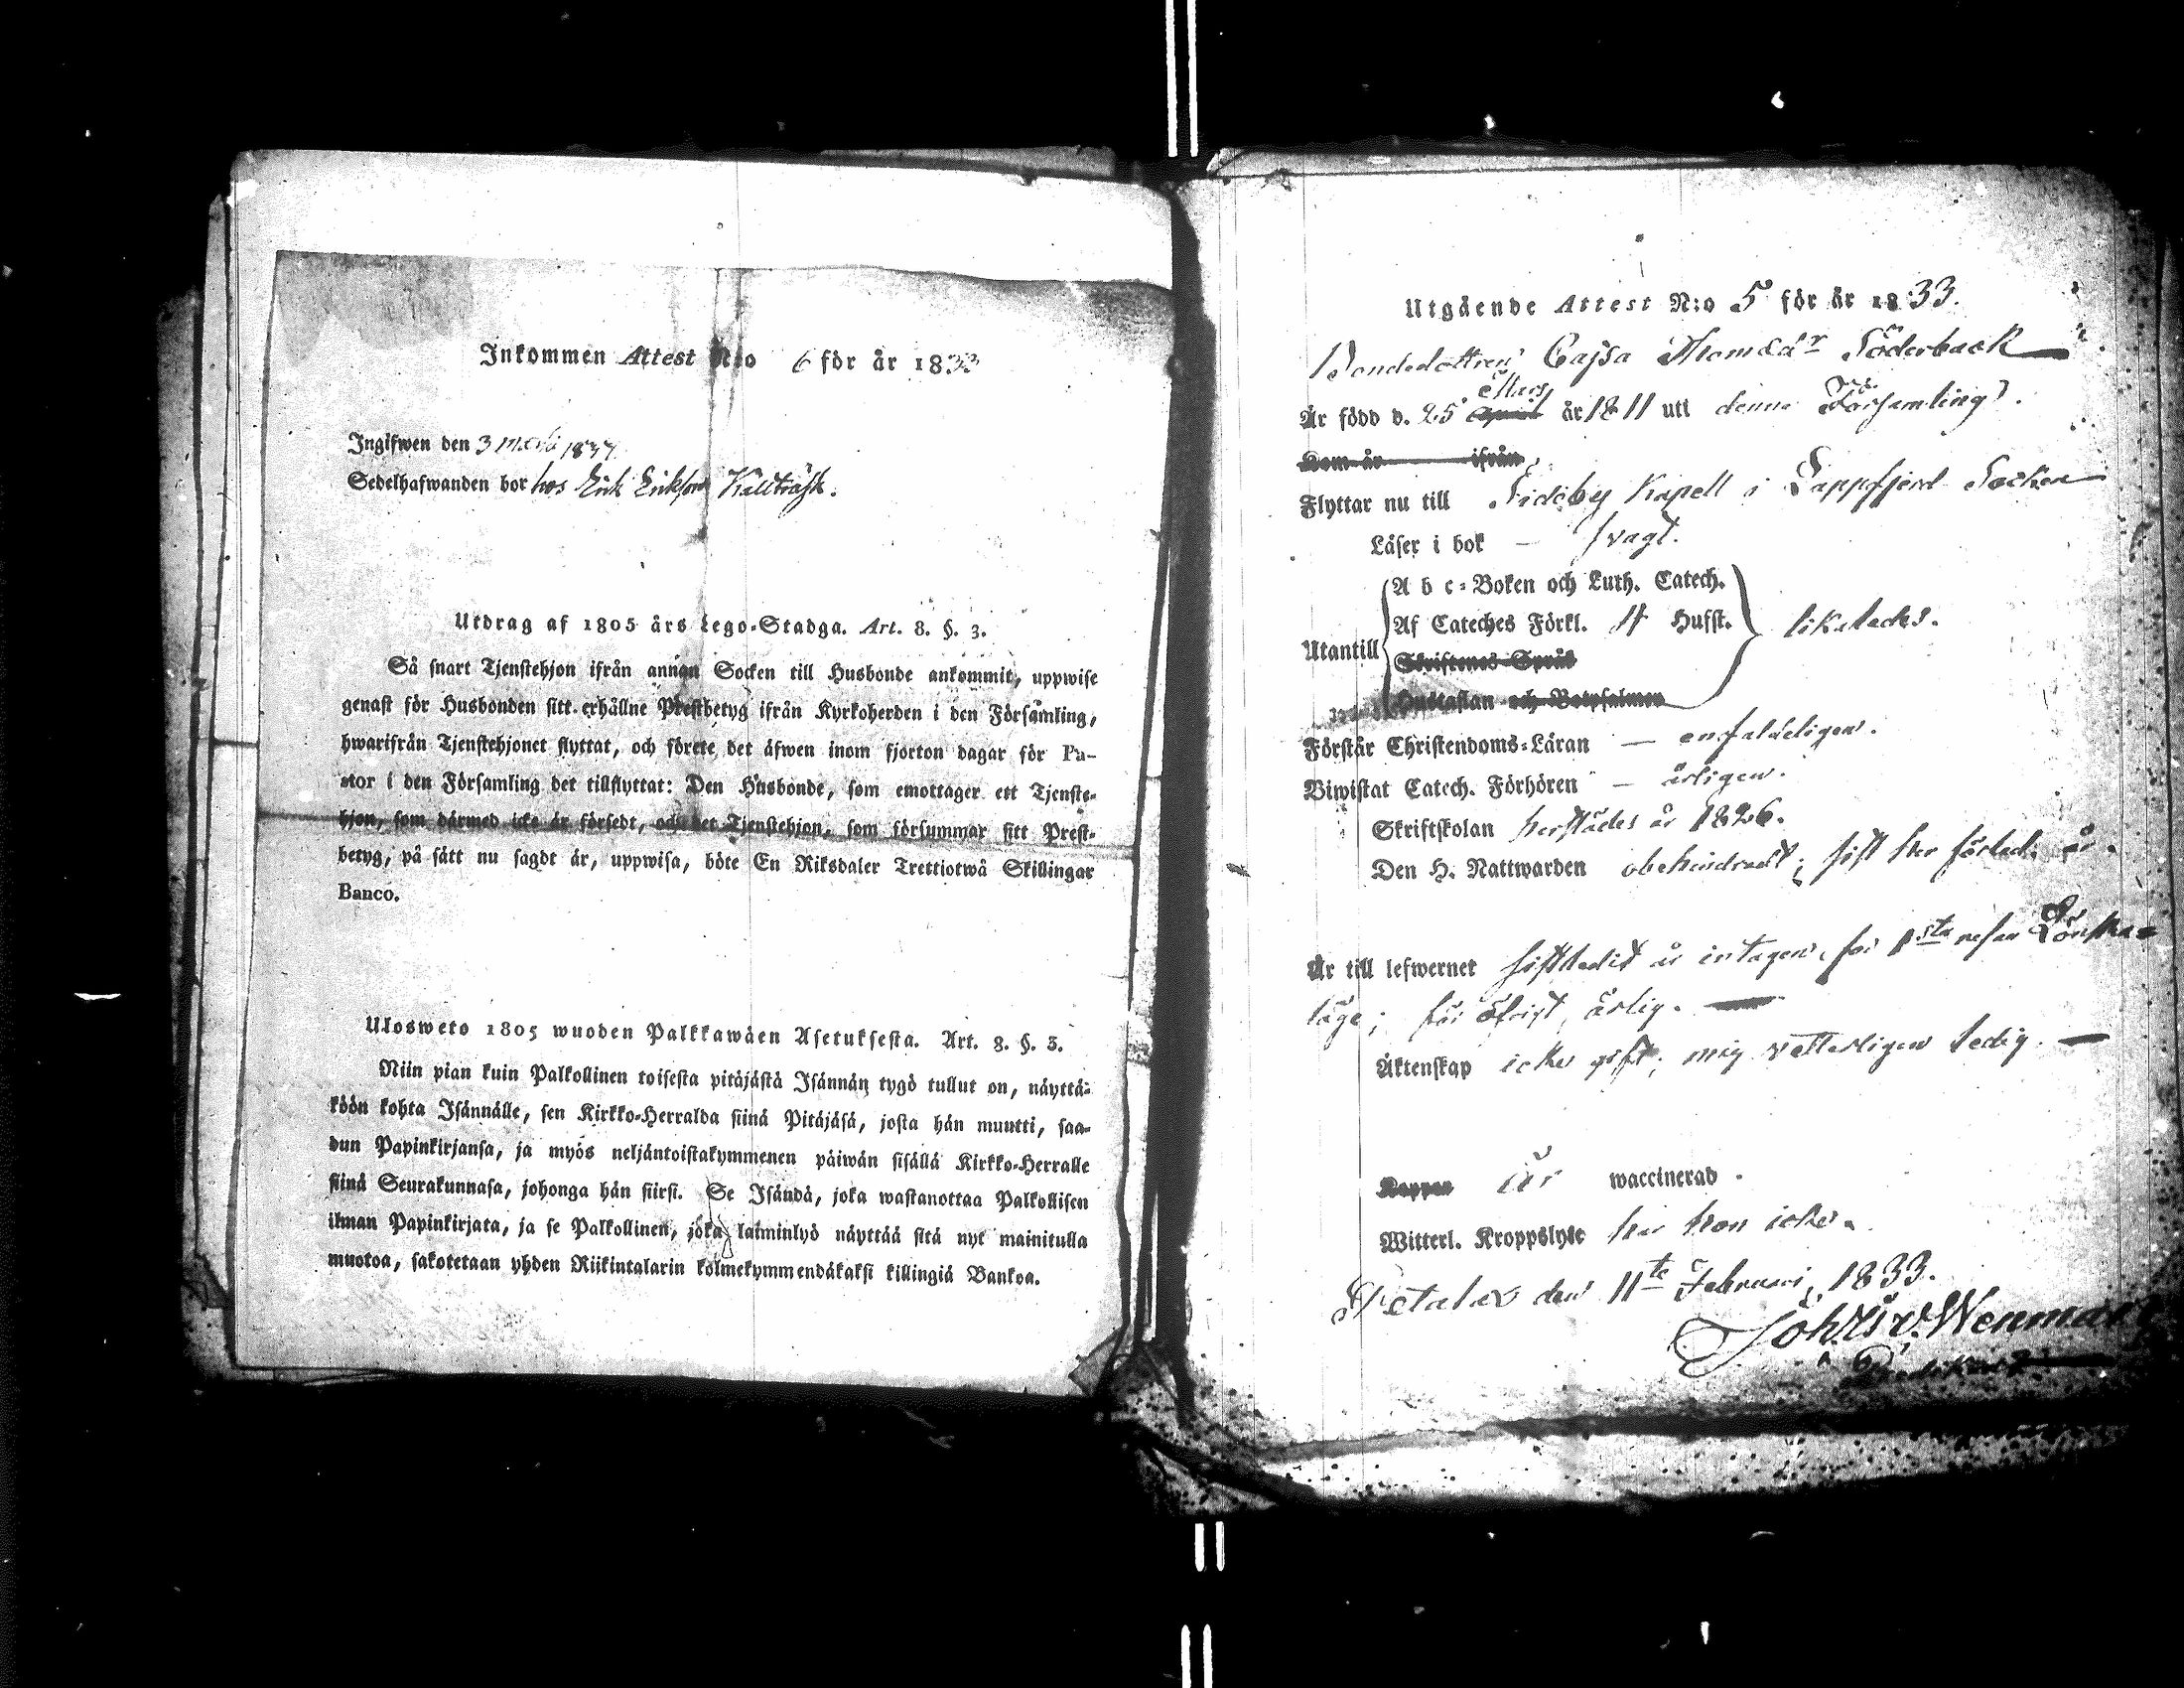 Inkommen Attest N:o 6 för år 1833
Ingifwen den 3 1837
Sedelhafwanden bor hos Erik Erikson Källträsk.
Utdrag af 1805 års Lego-Stadga. Art. 8. §. 3.
Så snart Tjenstehjon ifrån annan Socken till Husbonde ankommit, uppwise
genast för Husbonden sitt erhållne Prestbetyg ifrån Kyrkoherden i den Församling,
hwarifrån Tjenstehjonet flyttat, och förete det äfwen inom fjorton dagar för Pa-
stor i den Församling det tillflyttat: Den Husbonde, som emottager ett Tjenste-
hjon, som därmed icke är försedt, och det Tjenstehjon, som försummar sitt Prest-
betyg, på sätt nu sagdt är, uppwisa, böte En Riksdaler Trettiotwå Skillingar
Banco.
Ulosweto 1805 wuoden Palkkawäen Asetuksesta. Art. 8. §. 3.
Niin pian kuin Palkollinen toisesta pitäjästä Isännän tygö tullut on, näyttä-
köön kohta Isännälle, sen Kirkko-Herralda siinä Pitäjäsä, josta hän muutti, saa-
dun Papinkirjansa, ja myös neljäntoistakymmenen päiwän sisällä Kirkko-Herralle
siinä Seurakunnasa, johonga hän siirsi. Se Isändä, joka wastanottaa Palkollisen
ilman Papinkirjata, ja se Palkollinen, joka laiminlyö näyttää sitä nyt mainitulla
muotoa, sakotetaan yhden Riikintalarin kolmekymmendäkaksi killingiä Bankoa.
Utgående Attest N:o 5 för år 1833.
Bondedottren Cajsa Thomædr Söderback
Mars
Är född d. 25 April år 1811 utt denna Församling.
Kom år ifrån
Flyttar nu till Sideby Kapell i Lappfjerd Socken
Läser i bok — svagt.
Utantill
A b c-Boken och Luth. Catech.
Af Cateches Förkl. 4 Hufst. likaledes.
Skriftenes Språk
Hustaflan och Botpsalmen
Förstår Christendoms-Läran — enfaldeligen.
Biwistat Catech. Förhören — årligen.
Skriftskolan herstädes år 1826.
Den H. Nattwarden obehindradt; sist her förled. år.
Är till lefwernet sistledit år intagen för 1sta resan Lönska-
läge; för öfrigt ärlig.
Äktenskap icke gift; mig vetterligen ledig.
Koppor är waccinerad.
Witterl. Kroppslyte har hon icke.
Petalax den 11te Februari 1833.
Joh. Wenman